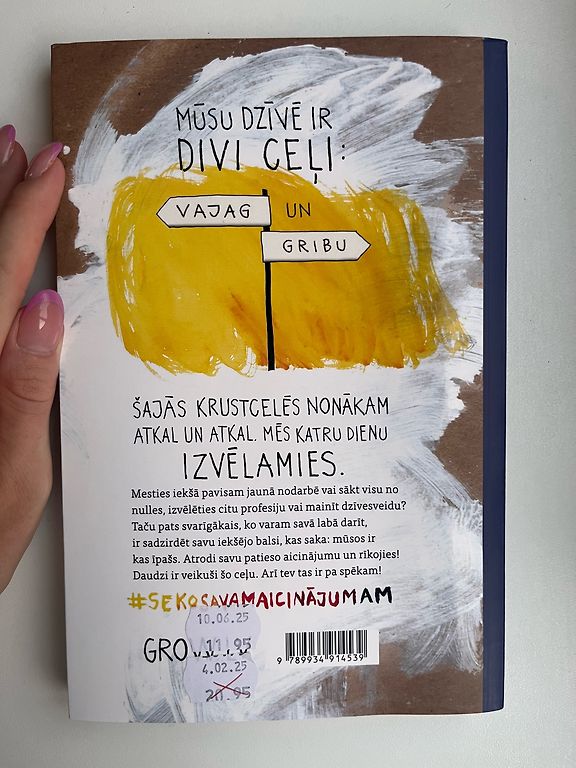 MŪSU DZĪVĒ IR
DIVI CEĻI:
VAJAG UN
GRIBU
ŠAJĀS KRUSTCELĒS NONĀKAM
ATKAL UN ATKAL. MĒS KATRU DIENU
IZVĒLAMIES.
Mesties iekšā pavisam jaunā nodarbē vai sākt visu no
nulles, izvēlēties citu profesiju vai mainīt dzīvesveidu?
Taču pats svarīgākais, ko varam savā labā darīt,
ir sadzirdēt savu iekšējo balsi, kas saka: mūsos ir
kas īpašs. Atrodi savu patieso aicinājumu un rīkojies!
Daudzi ir veikuši šo ceļu. Arī tev tas ir pa spēkam!
#SEKOSAVAMAICINĀJUMAM
10.06.25
11.95
4.02.25
20.95
9 789934 914539